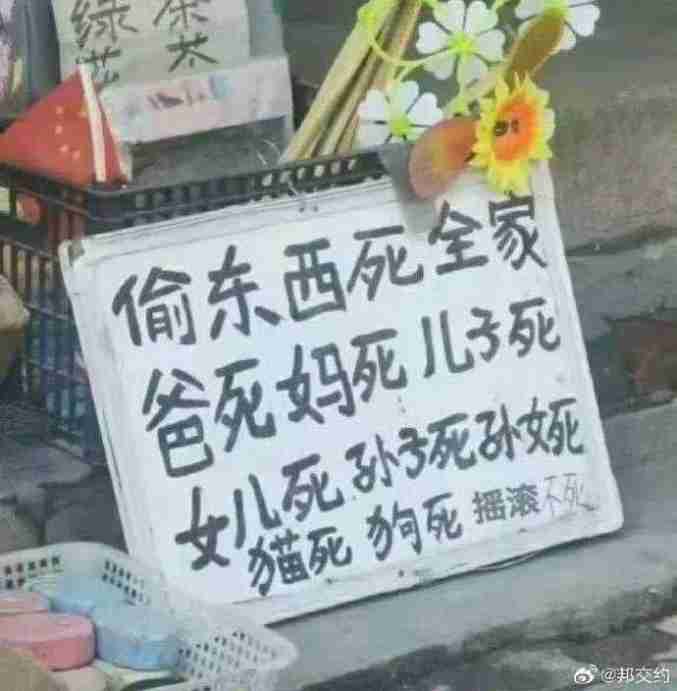 绿 茶
偷东西死全家
爸死妈死儿子死
女儿死孙子死孙女死
猫死 狗死 摇滚不死
@邦交约